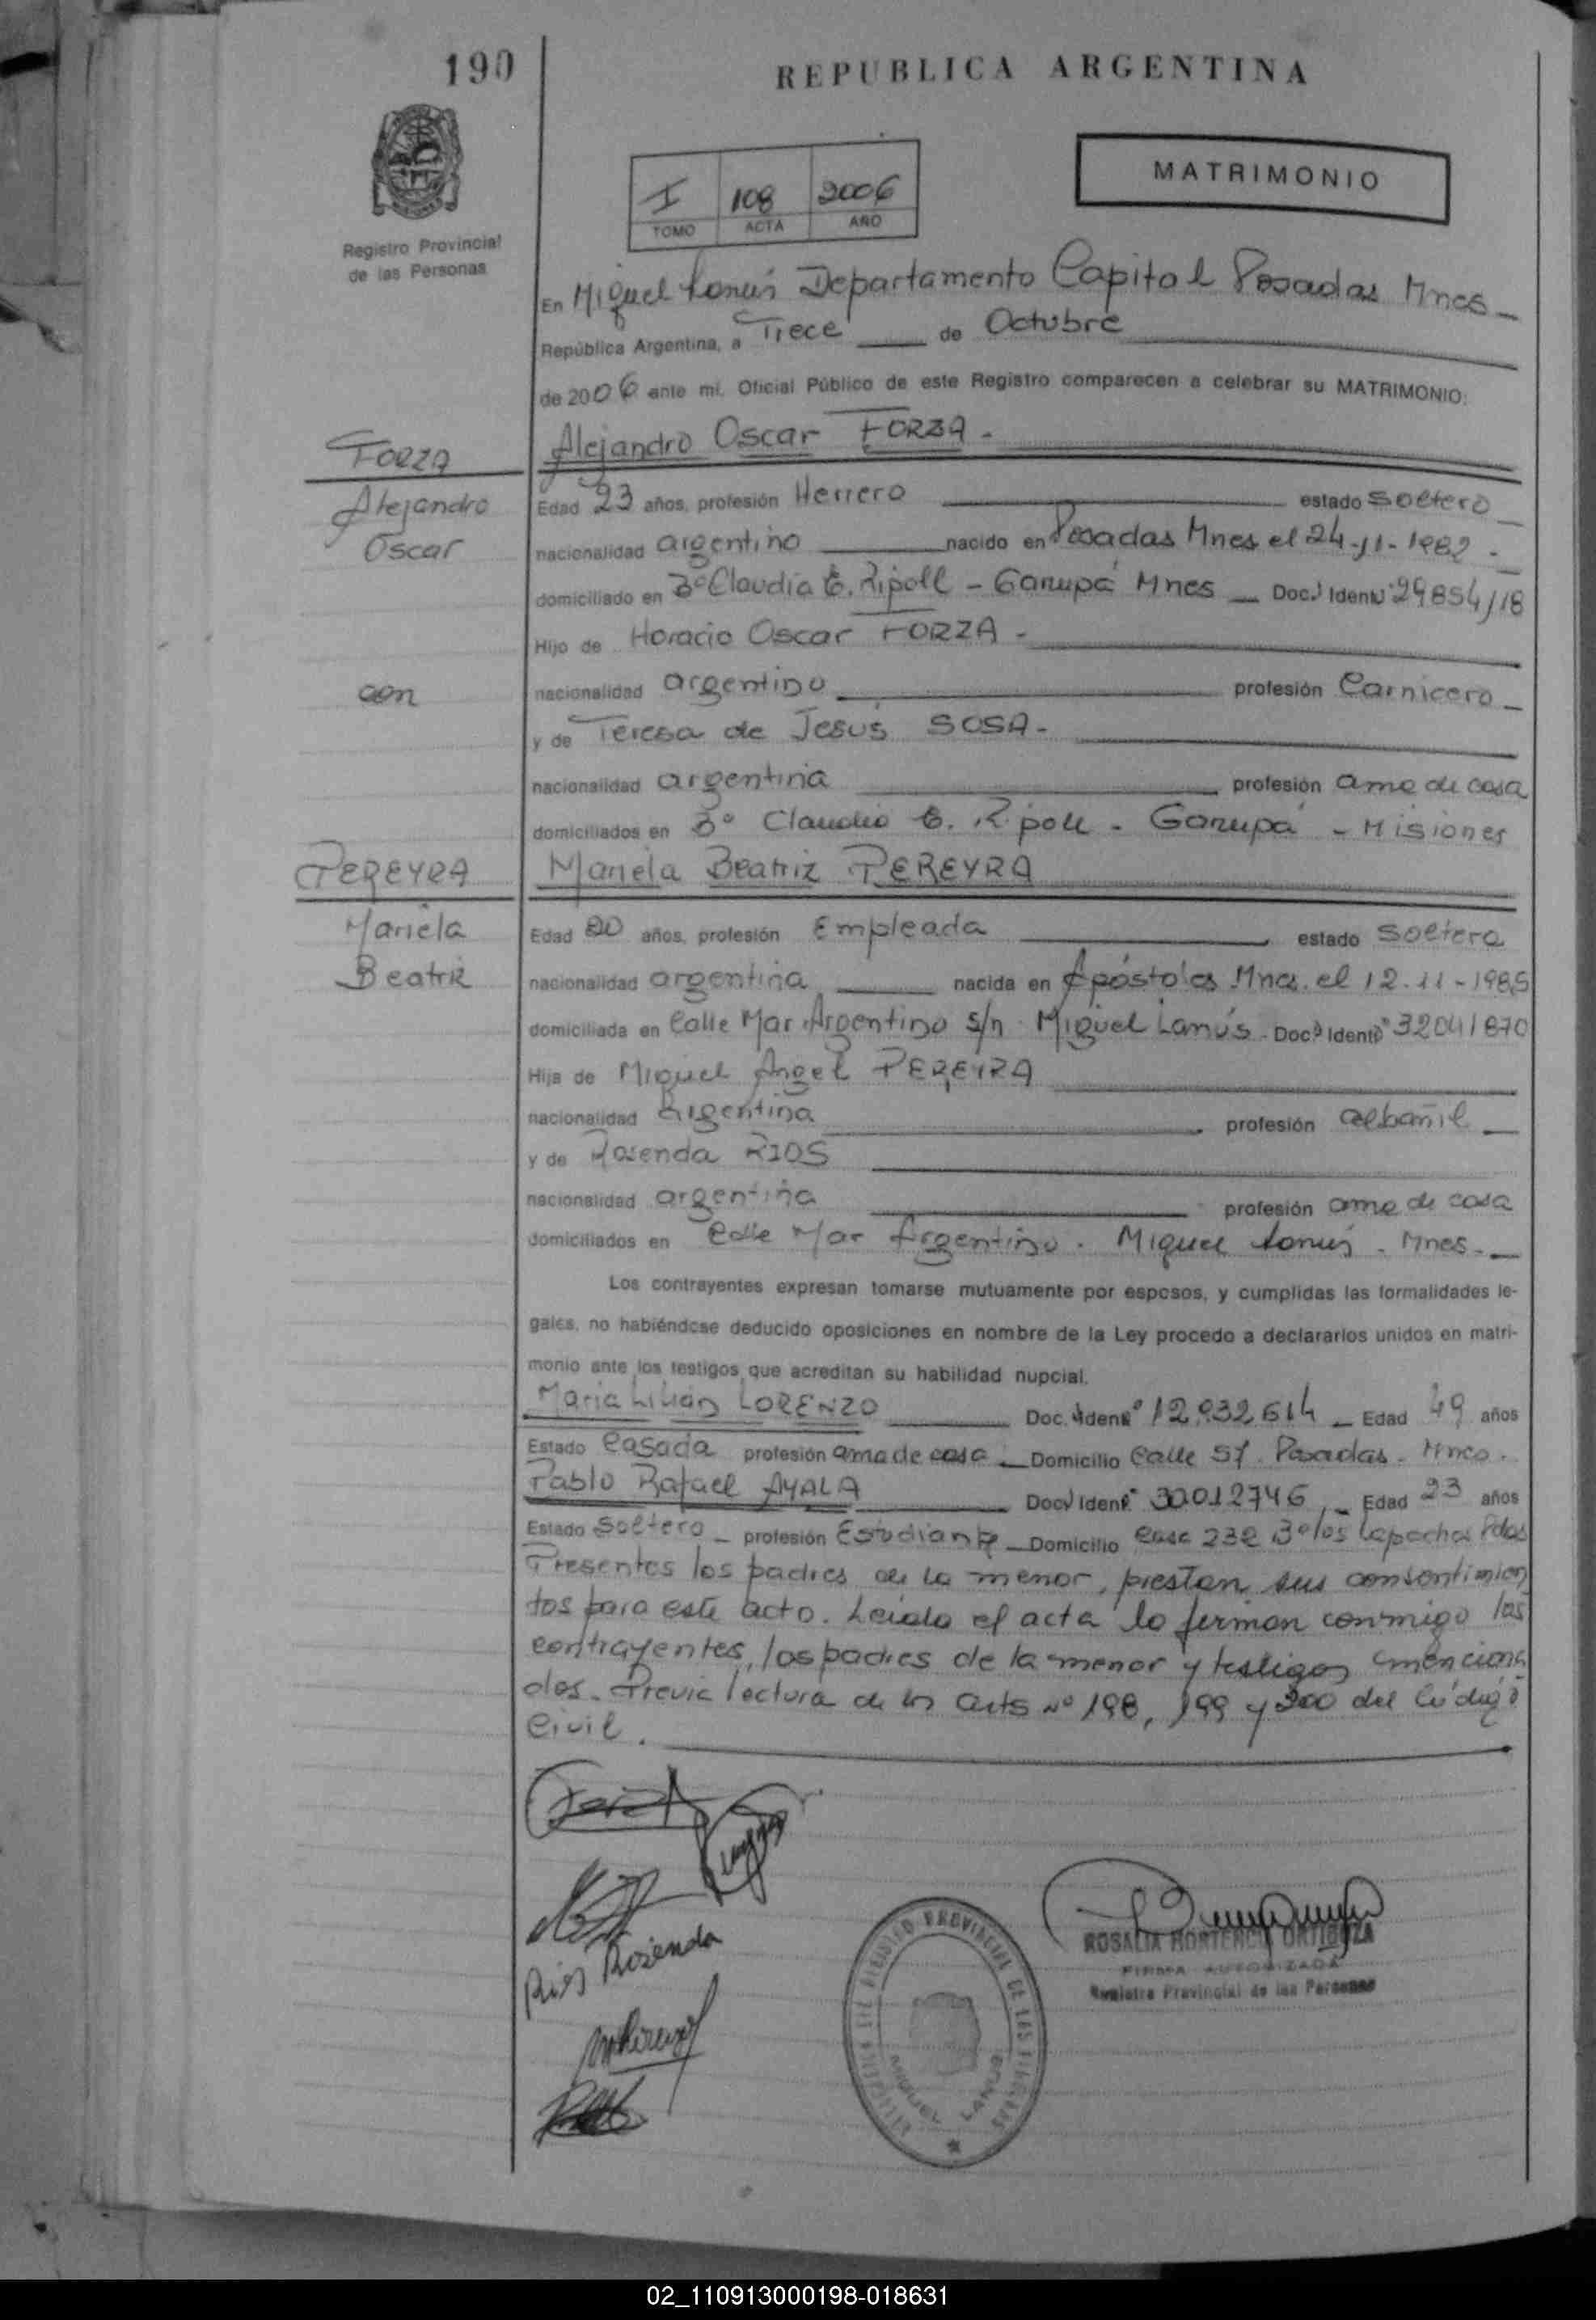 190
REPUBLICA ARGENTINA
MATRIMONIO
I 108 2006
TOMO ACTA AÑO
Registro Provincial
de las Personas
En Miguel Lanús Departamento Capital Posadas Mnes
República Argentina, a Trece de Octubre
de 2006 ante mi, Oficial Público de este Registro comparecen a celebrar su MATRIMONIO:
FORZA
Alejandro Oscar FORZA -
Alejandro
Oscar
Edad 23 años, profesión Herrero estado soltero
nacionalidad argentino nacido en Posadas Mnes el 24-11-1982 -
domiciliado en Bº Claudia E. Ripoll - Garupá Mnes Doc. Ident. 29854118
Hijo de Horacio Oscar FORZA -
con
nacionalidad argentino profesión Carnicero
y de Teresa de Jesús SOSA -
nacionalidad argentina profesión ama de casa
domiciliados en Bº Claudio E. Ripoll - Garupá - Misiones
PEREYRA
Mariela Beatriz PEREYRA
Mariela
Beatriz
Edad 20 años, profesión Empleada estado soltera
nacionalidad argentina nacida en Apóstoles Mnes. el 12-11-1985
domiciliada en Calle Mar Argentino s/n Miguel Lanús - Doc. Ident. 32041870
Hija de Miguel Angel PEREYRA
nacionalidad Argentina profesión albañil
y de Rosenda RIOS
nacionalidad argentina profesión ama de casa
domiciliados en Calle Mar Argentino. Miguel Lanús - Mnes.
Los contrayentes expresan tomarse mutuamente por esposos, y cumplidas las formalidades le-
gales, no habiéndose deducido oposiciones en nombre de la Ley procedo a declararlos unidos en matri-
monio ante los testigos que acreditan su habilidad nupcial.
Maria Lilián LORENZO Doc. Ident. 12.932.614 Edad 49 años
Estado Casada profesión ama de casa Domicilio Calle 57 Posadas - Mnes.
Pablo Rafael AYALA Doc. Ident. 30.012746 Edad 23 años
Estado Soltero profesión Estudiante Domicilio Casa 232 Bº los Lapachos Pdas
Presentes los padres de la menor, prestan sus consentimien
tos para este acto. Leída el acta la firman conmigo los
contrayentes, los padres de la menor y testigos menciona
dos. Previa lectura de los arts Nº 198, 199 y 200 del Código
Civil.
Rios Rosenda
ROSALIA HORTENCIA ORTIGOZA
FIRMA AUTORIZADA
Registro Provincial de las Personas
REGISTRO PROVINCIAL DE LAS PERSONAS
MIGUEL LANUS
02_110913000198-018631